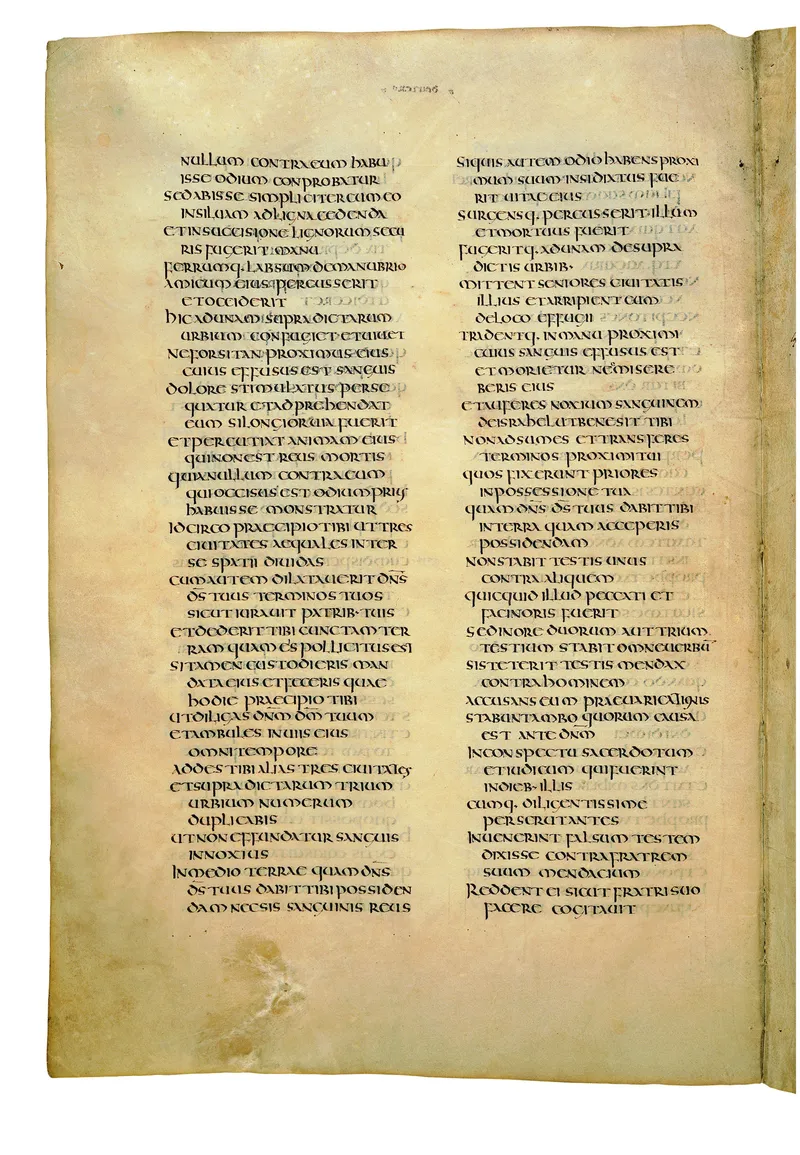 NULLUM CONTRA EUM HABU
ISSE ODIUM CONPROBATUR
SED ABISSE SIMPLICITER CUM EO
IN SILUAM AD LIGNA CEDENDA
ET IN SUCCISIONE LIGNORUM SECU
RIS FUGERIT MANU
FERRUMQ· LABSUM DE MANUBRIO
AMICUM EIUS PERCUSSERIT
ET OCCIDERIT
HIC AD UNAM SUPRADICTARUM
URBIUM CONFUGIET ET UIUET
NE FORSITAN PROXIMUS EIUS
CUIUS EFFUSUS EST SANGUIS
DOLORE STIMULATUS PERSE
QUATUR ET ADPREHENDAT
EUM SI LONGIOR UIA FUERIT
ET PERCUTIAT ANIMAM EIUS
QUI NON EST REUS MORTIS
QUIA NULLUM CONTRA EUM
QUI OCCISUS EST ODIUM PRIUS
HABUISSE MONSTRATUR
IDCIRCO PRAECIPIO TIBI UT TRES
CIUITATES AEQUALES INTER
SE SPATII DIUIDAS
CUM AUTEM DILATAUERIT DN̄S
D̄S TUUS TERMINOS TUOS
SICUT IURAUIT PATRIB· TUIS
ET DEDERIT TIBI CUNCTAM TER
RAM QUAM EIS POLLICITUS EST
SI TAMEN CUSTODIERIS MAN
DATA EIUS ET FECERIS QUAE
HODIE PRAECIPIO TIBI
UT DILIGAS DN̄M D̄M TUUM
ET AMBULES IN UIIS EIUS
OMNI TEMPORE
ADDES TIBI ALIAS TRES CIUITATES
ET SUPRADICTARUM TRIUM
URBIUM NUMERUM
DUPLICABIS
UT NON EFFUNDATUR SANGUIS
INNOXIUS
IN MEDIO TERRAE QUAM DN̄S
D̄S TUUS DABIT TIBI POSSIDEN
DAM NEC SIS SANGUINIS REUS
SI QUIS AUTEM ODIO HABENS PROXI
MUM SUUM INSIDIATUS FUE
RIT UITAE EIUS
SURGENSQ· PERCUSSERIT ILLUM
ET MORTUUS FUERIT
FUGERITQ· AD UNAM DE SUPRA
DICTIS URBIB·
MITTENT SENIORES CIUITATIS
ILLIUS ET ARRIPIENT EUM
DE LOCO EFFUGII
TRADENTQ· IN MANU PROXIMI
CUIUS SANGUIS EFFUSUS EST
ET MORIETUR NE MISERE
BERIS EIUS
ET AUFERES NOXIUM SANGUINEM
DE ISRAHEL UT BENE SIT TIBI
NON ADSUMES ET TRANSFERES
TERMINOS PROXIMI TUI
QUOS FIXERUNT PRIORES
IN POSSESSIONE TUA
QUAM DN̄S D̄S TUUS DABIT TIBI
IN TERRA QUAM ACCEPERIS
POSSIDENDAM
NON STABIT TESTIS UNUS
CONTRA ALIQUEM
QUICQUID ILLUD PECCATI ET
FACINORIS FUERIT
SED IN ORE DUORUM AUT TRIUM
TESTIUM STABIT OMNE UERBŪ
SI STETERIT TESTIS MENDAX
CONTRA HOMINEM
ACCUSANS EUM PRAEUARICATIONIS
STABUNT AMBO QUORUM CAUSA
EST ANTE DN̄M
IN CONSPECTU SACERDOTUM
ET IUDICUM QUI FUERINT
IN DIEB· ILLIS
CUMQ· DILIGENTISSIME
PERSCRUTANTES
INUENERINT FALSUM TESTEM
DIXISSE CONTRA FRATREM
SUUM MENDACIUM
REDDENT EI SICUT FRATRI SUO
FACERE COGITAUIT